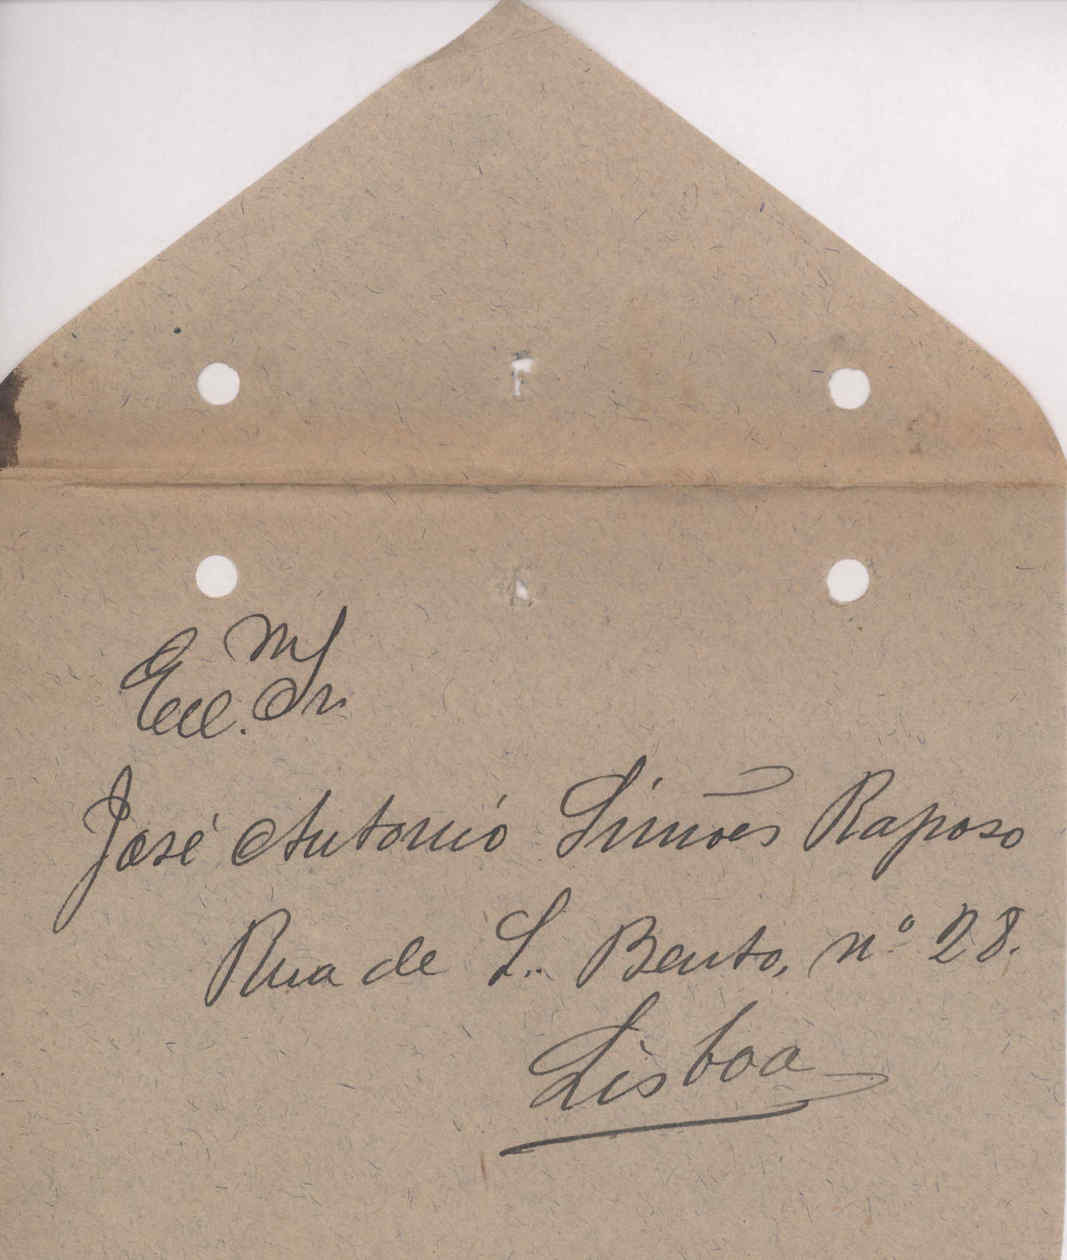 Exc.mo Sr.
José Antonio Simões Raposo
Rua de S. Bento, nº 28.
Lisboa